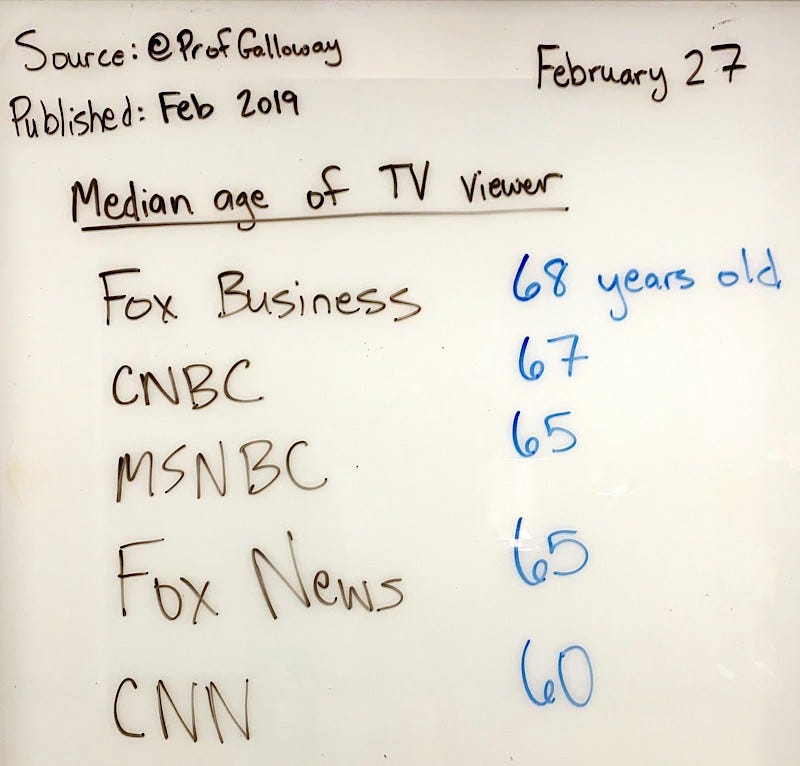 Source: @ProfGalloway
February 27
Published: Feb 2019
Median age of TV Viewer
Fox Business 68 years old
CNBC 67
MSNBC 65
Fox News 65
CNN 60